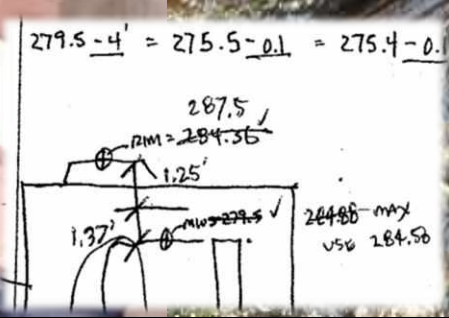 279.5 - 4' = 275.5 - 0.1 = 275.4 - 0.1
287.5
RIM = 284.56
1.25'
1.37'
279.5
284.88 MAX
USE 284.58